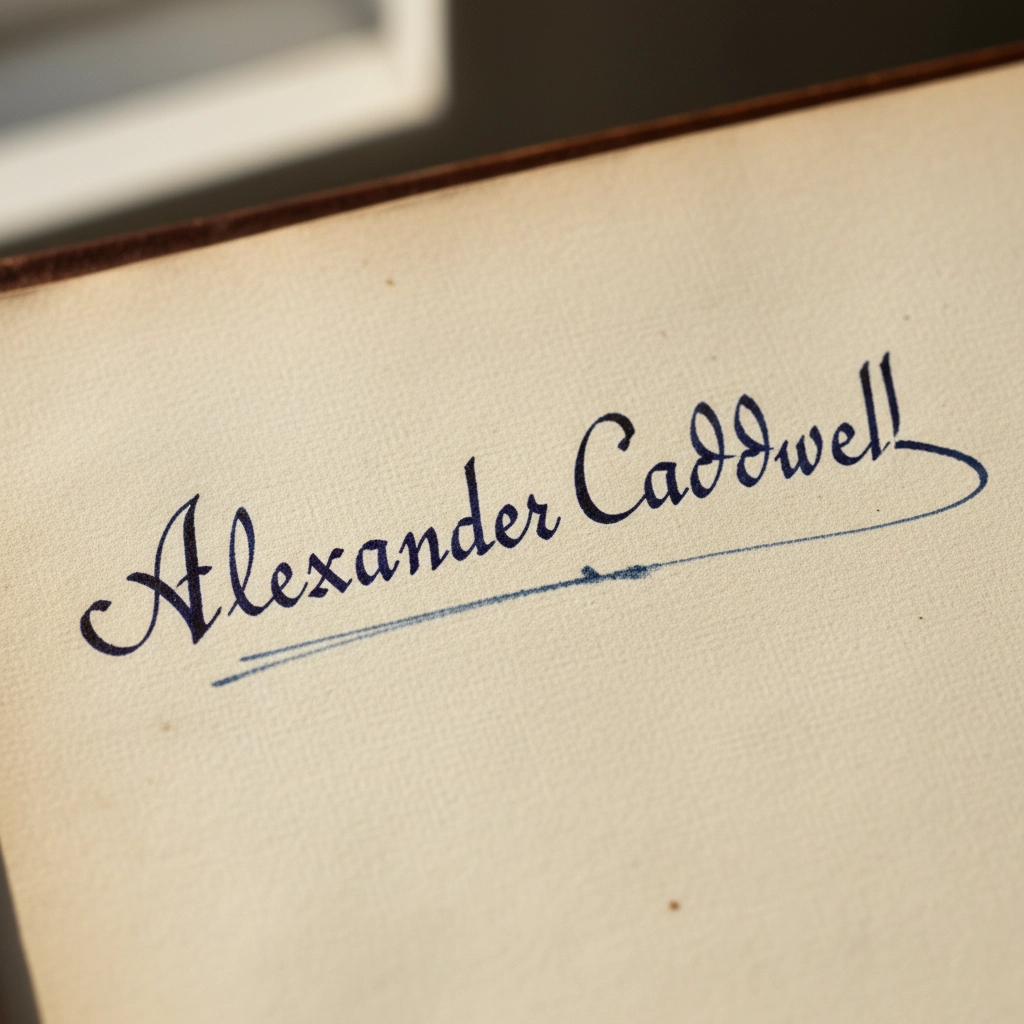 Alexander Caddwell